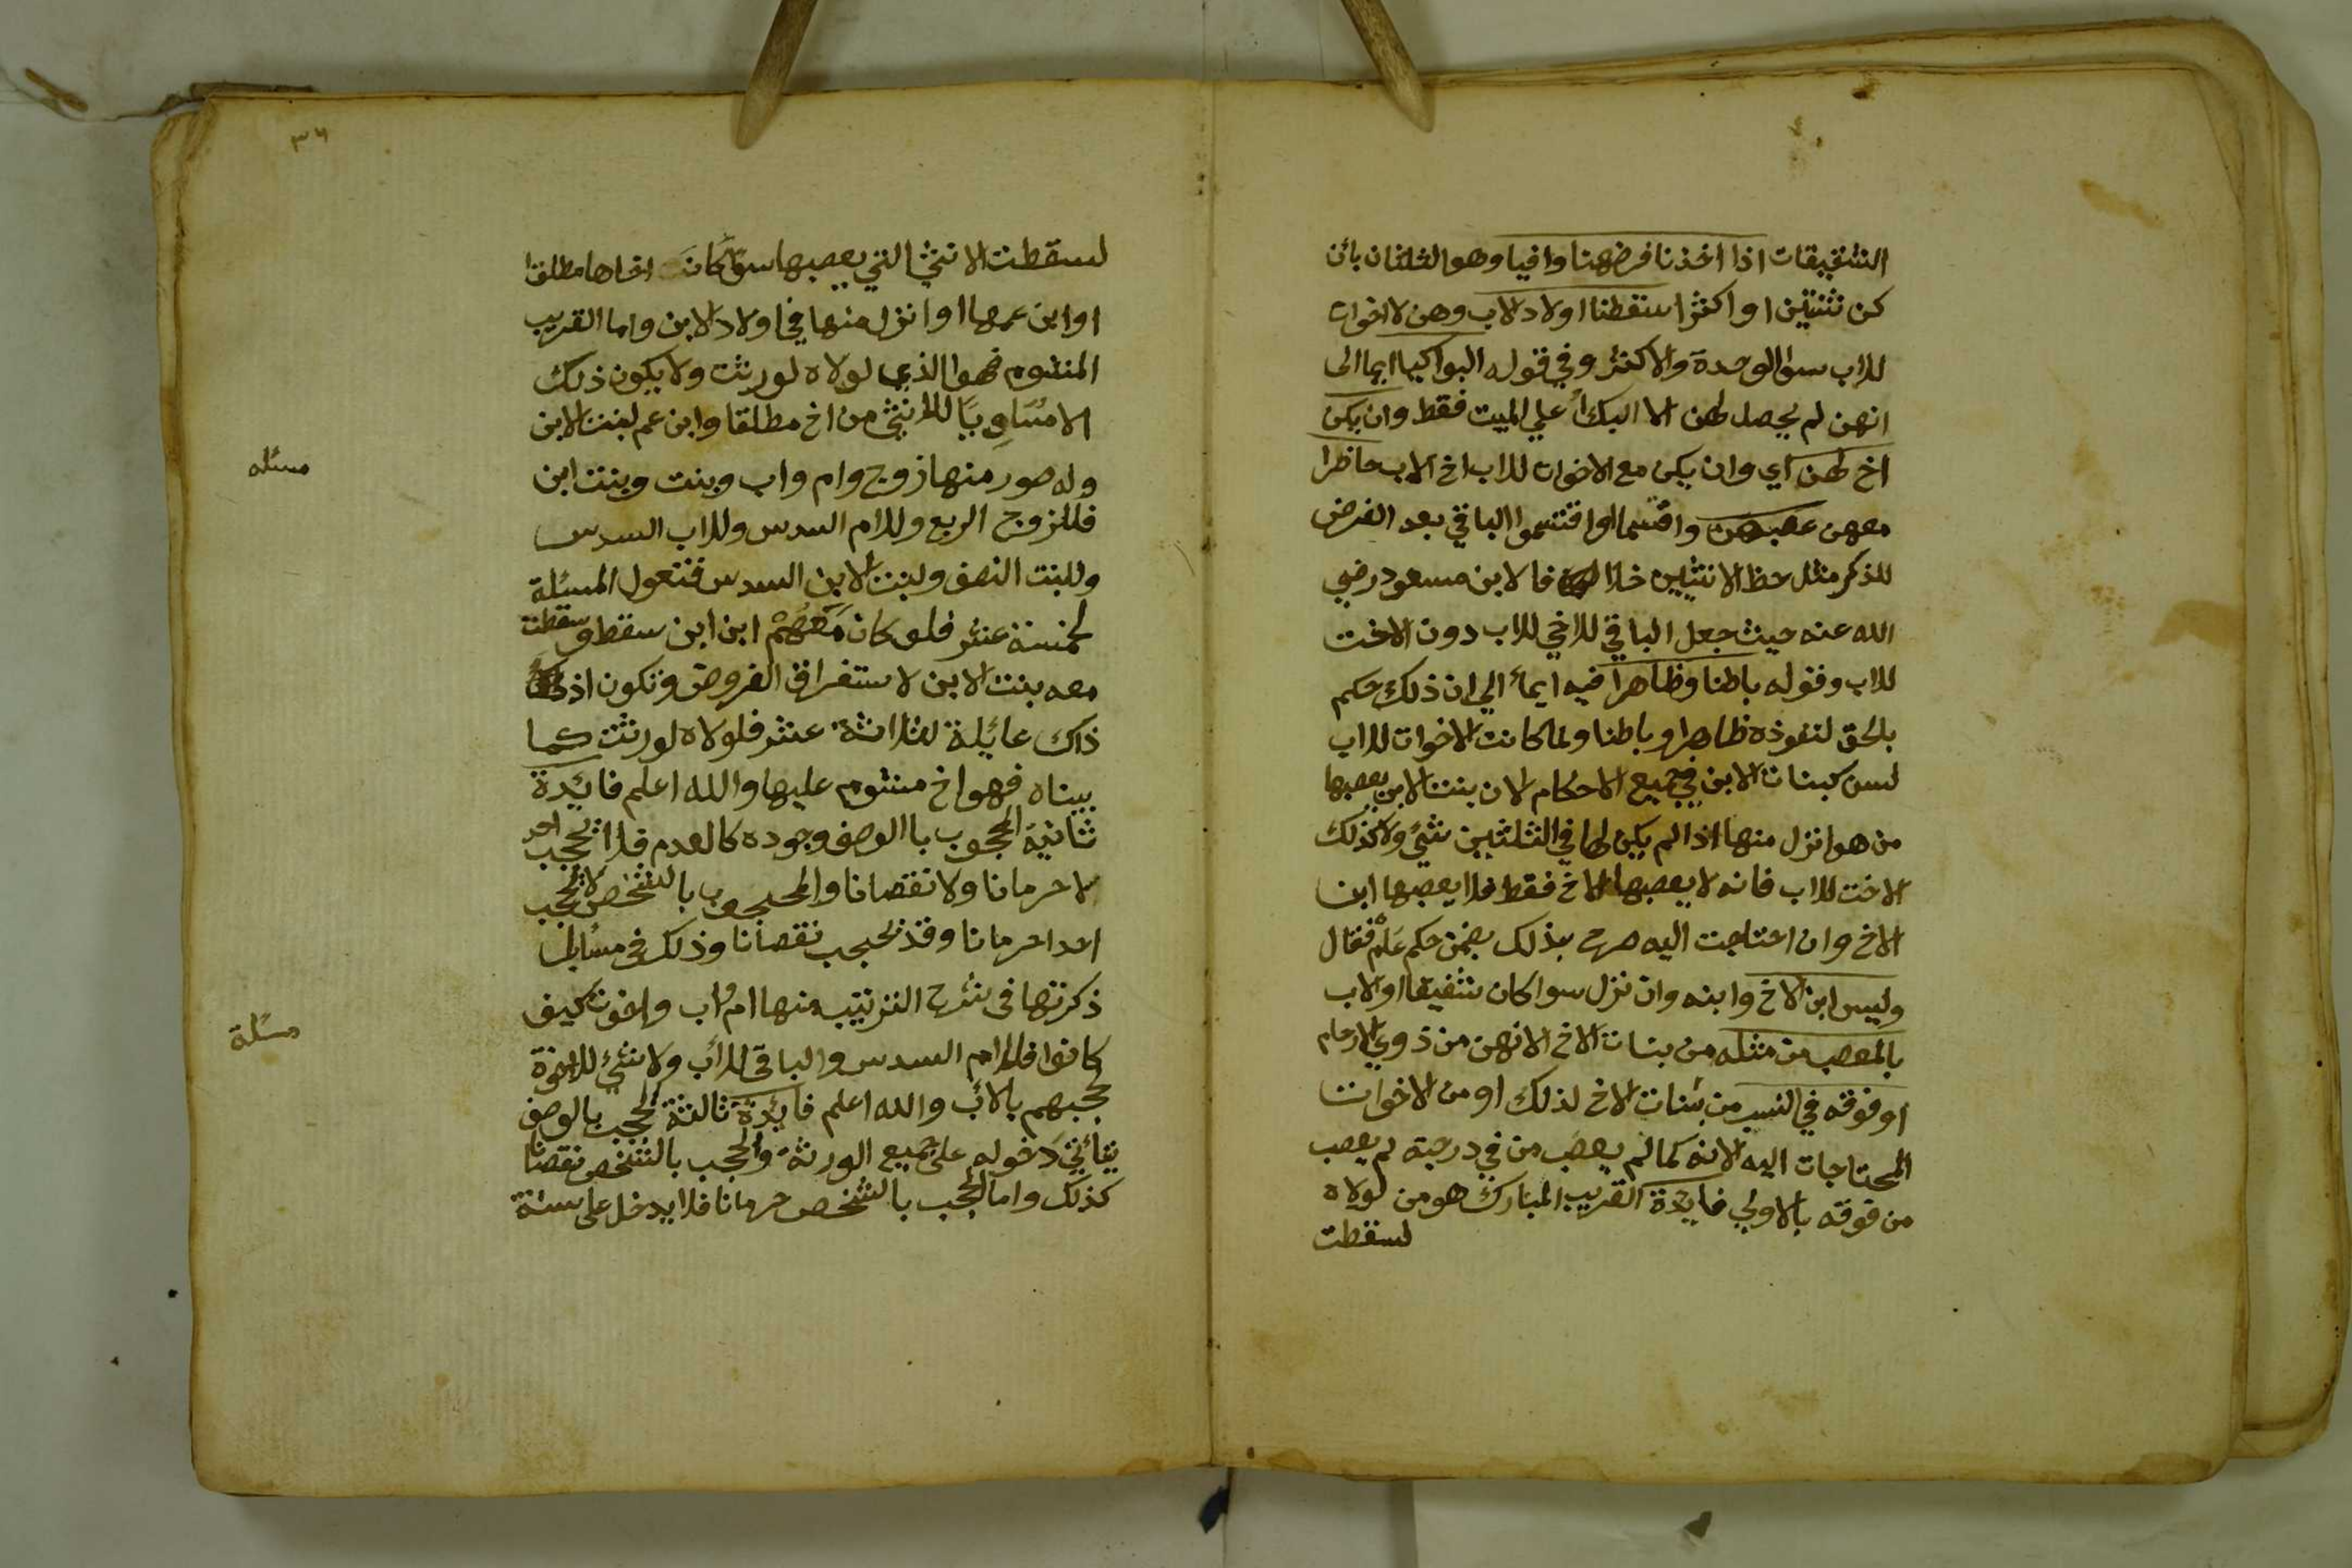 الشقيقات اذا اخذنا فرضهنا وافيا وهو الثلثان بائن
كن ثنتين او اكثر اسقطنا اولاد الاب وهن الاخوات
للاب سوا الوحدة والاكثر وفي قوله البواكيا ايما الى
انهن لم يحصل لهن الا البكأ علي الميت فقط وان يكن
اخ لهن اي وان يكن مع الاخوات للاب اخ الاب حاظرا
معهن عصبهن واقتسما او اقتسموا الباقي بعد الفرض
للذكر مثل حظ الانثيين خلافا لابن مسعود رضي
الله عنه حيث جعل الباقي للاخي للاب دون الاخت
للاب وقوله باطنا وظاهرا فيه ايمأ الي ان ذلك حكم
بالحق لنفوذه ظاهرا وباطنا ولما كانت الاخوات للاب
لسن كبنات الابن في جميع الاحكام لان بنت الابن يعصبها
من هو انزل منها اذا لم يكن لها في الثلثين شئ ولا كذلك
الاخت للاب فانه لا يعصبها الا الاخ فقط فلا يعصبها ابن
الاخ وان احتاجت اليه صرح بذلك بضمن حكم علم فقال
وليس ابن الاخ وابنه وان نزل سوا كان شقيقا او لاب
بالمعصب من مثله من بنات الاخ لانهن من ذوي الارحام
او فوقه في النسب من بنات الاخ لذلك او من الاخوات
المحتاجات اليه لانه كما لم يعصب من في درجته لم يعصب
من فوقه بالاولي فايدة القريب المبارك هو من لولاه
لسقطت
٣٦
لسقطت الانثي التي يعصبها سوآ كانت اخاها مطلقا
او ابن عمها او انزل منها في اولاد الابن واما القريب
المشوم فهو الذي لولاه لورثت ولا يكون ذلك
الا مساويا للانثي من اخ مطلقا وابن عم لبنت الابن
وله صور منها زوج وام واب وبنت وبنت ابن
مسئله
فللزوج الربع وللام السدس وللاب السدس
وللبنت النصف ولبنت الابن السدس فتعول المسئلة
لخمسة عشر فلو كان معهم ابن ابن سقط وسقطت
معه بنت الابن لاستغراق الفروض وتكون اذ
ذاك عايلة لثلاثة عشر فلولاه لورثت كما
بيناه فهو اخ مشوم عليها والله اعلم فايدة
ثانية المحجوب باالوصف وجوده كالعدم فلا يحجب احد
لا حرمانا ولا نقصانا والمحجوب بالشخص لا يحجب
احدا حرمانا وقد يحجب نقصانا وذلك في مسايل
ذكرتها في شرح الترتيب منها ام واب واخوت كيف
كانوا فللام السدس والباقي للأب ولا شئ للاخوة
مسئلة
لحجبهم بالأب والله اعلم فايدة ثالثة الحجب بالوصف
يتأتي دخوله على جميع الورثة والحجب بالشخص نقصانا
كذلك واما الحجب بالشخص حرمانا فلا يدخل على ستة